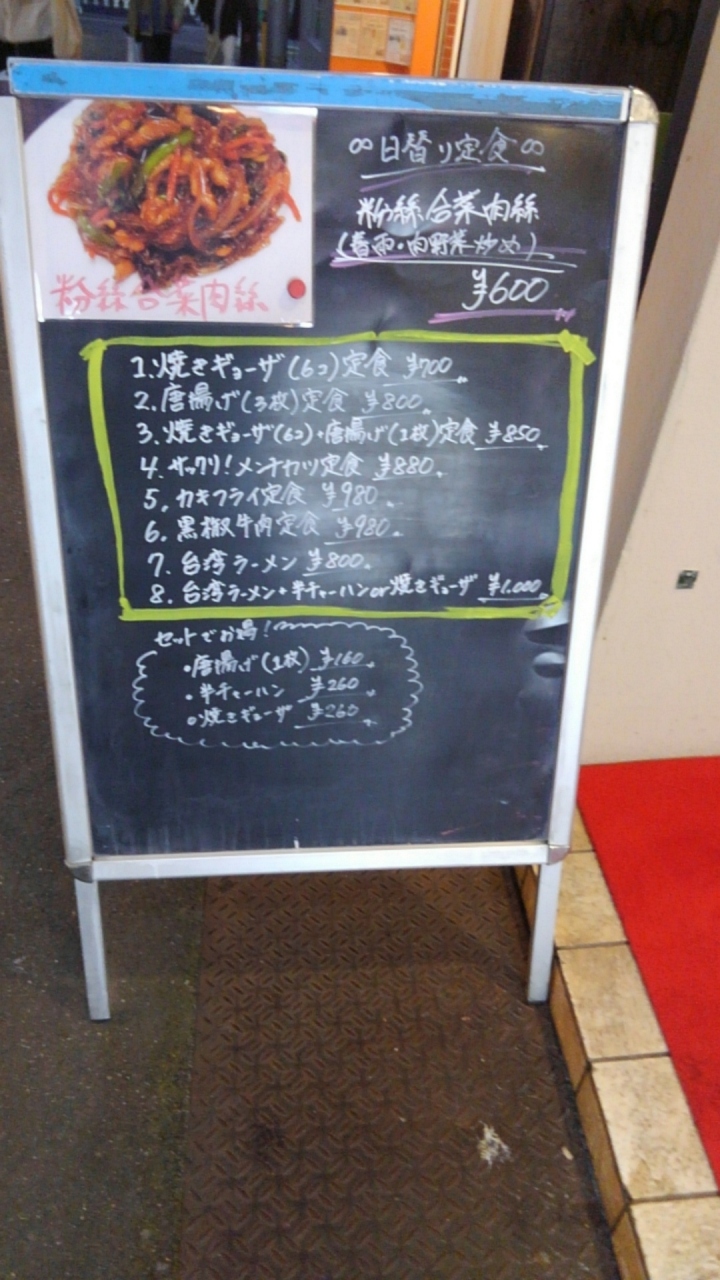 日替り定食
粉絲合菜肉絲
(春雨・肉野菜炒め)
¥600
粉絲合菜肉絲
1.焼きギョーザ(6コ)定食 ¥700
2.唐揚げ(3枚)定食 ¥800
3.焼きギョーザ(6コ)+唐揚げ(1枚)定食 ¥850
4.サックリ!メンチカツ定食 ¥880
5.カキフライ定食 ¥980
6.黒椒牛肉定食 ¥980
7.台湾ラーメン ¥800
8.台湾ラーメン+半チャーハンor焼きギョーザ ¥1,000
セットでお得!
・唐揚げ(1枚) ¥160
・半チャーハン ¥260
・焼きギョーザ ¥260